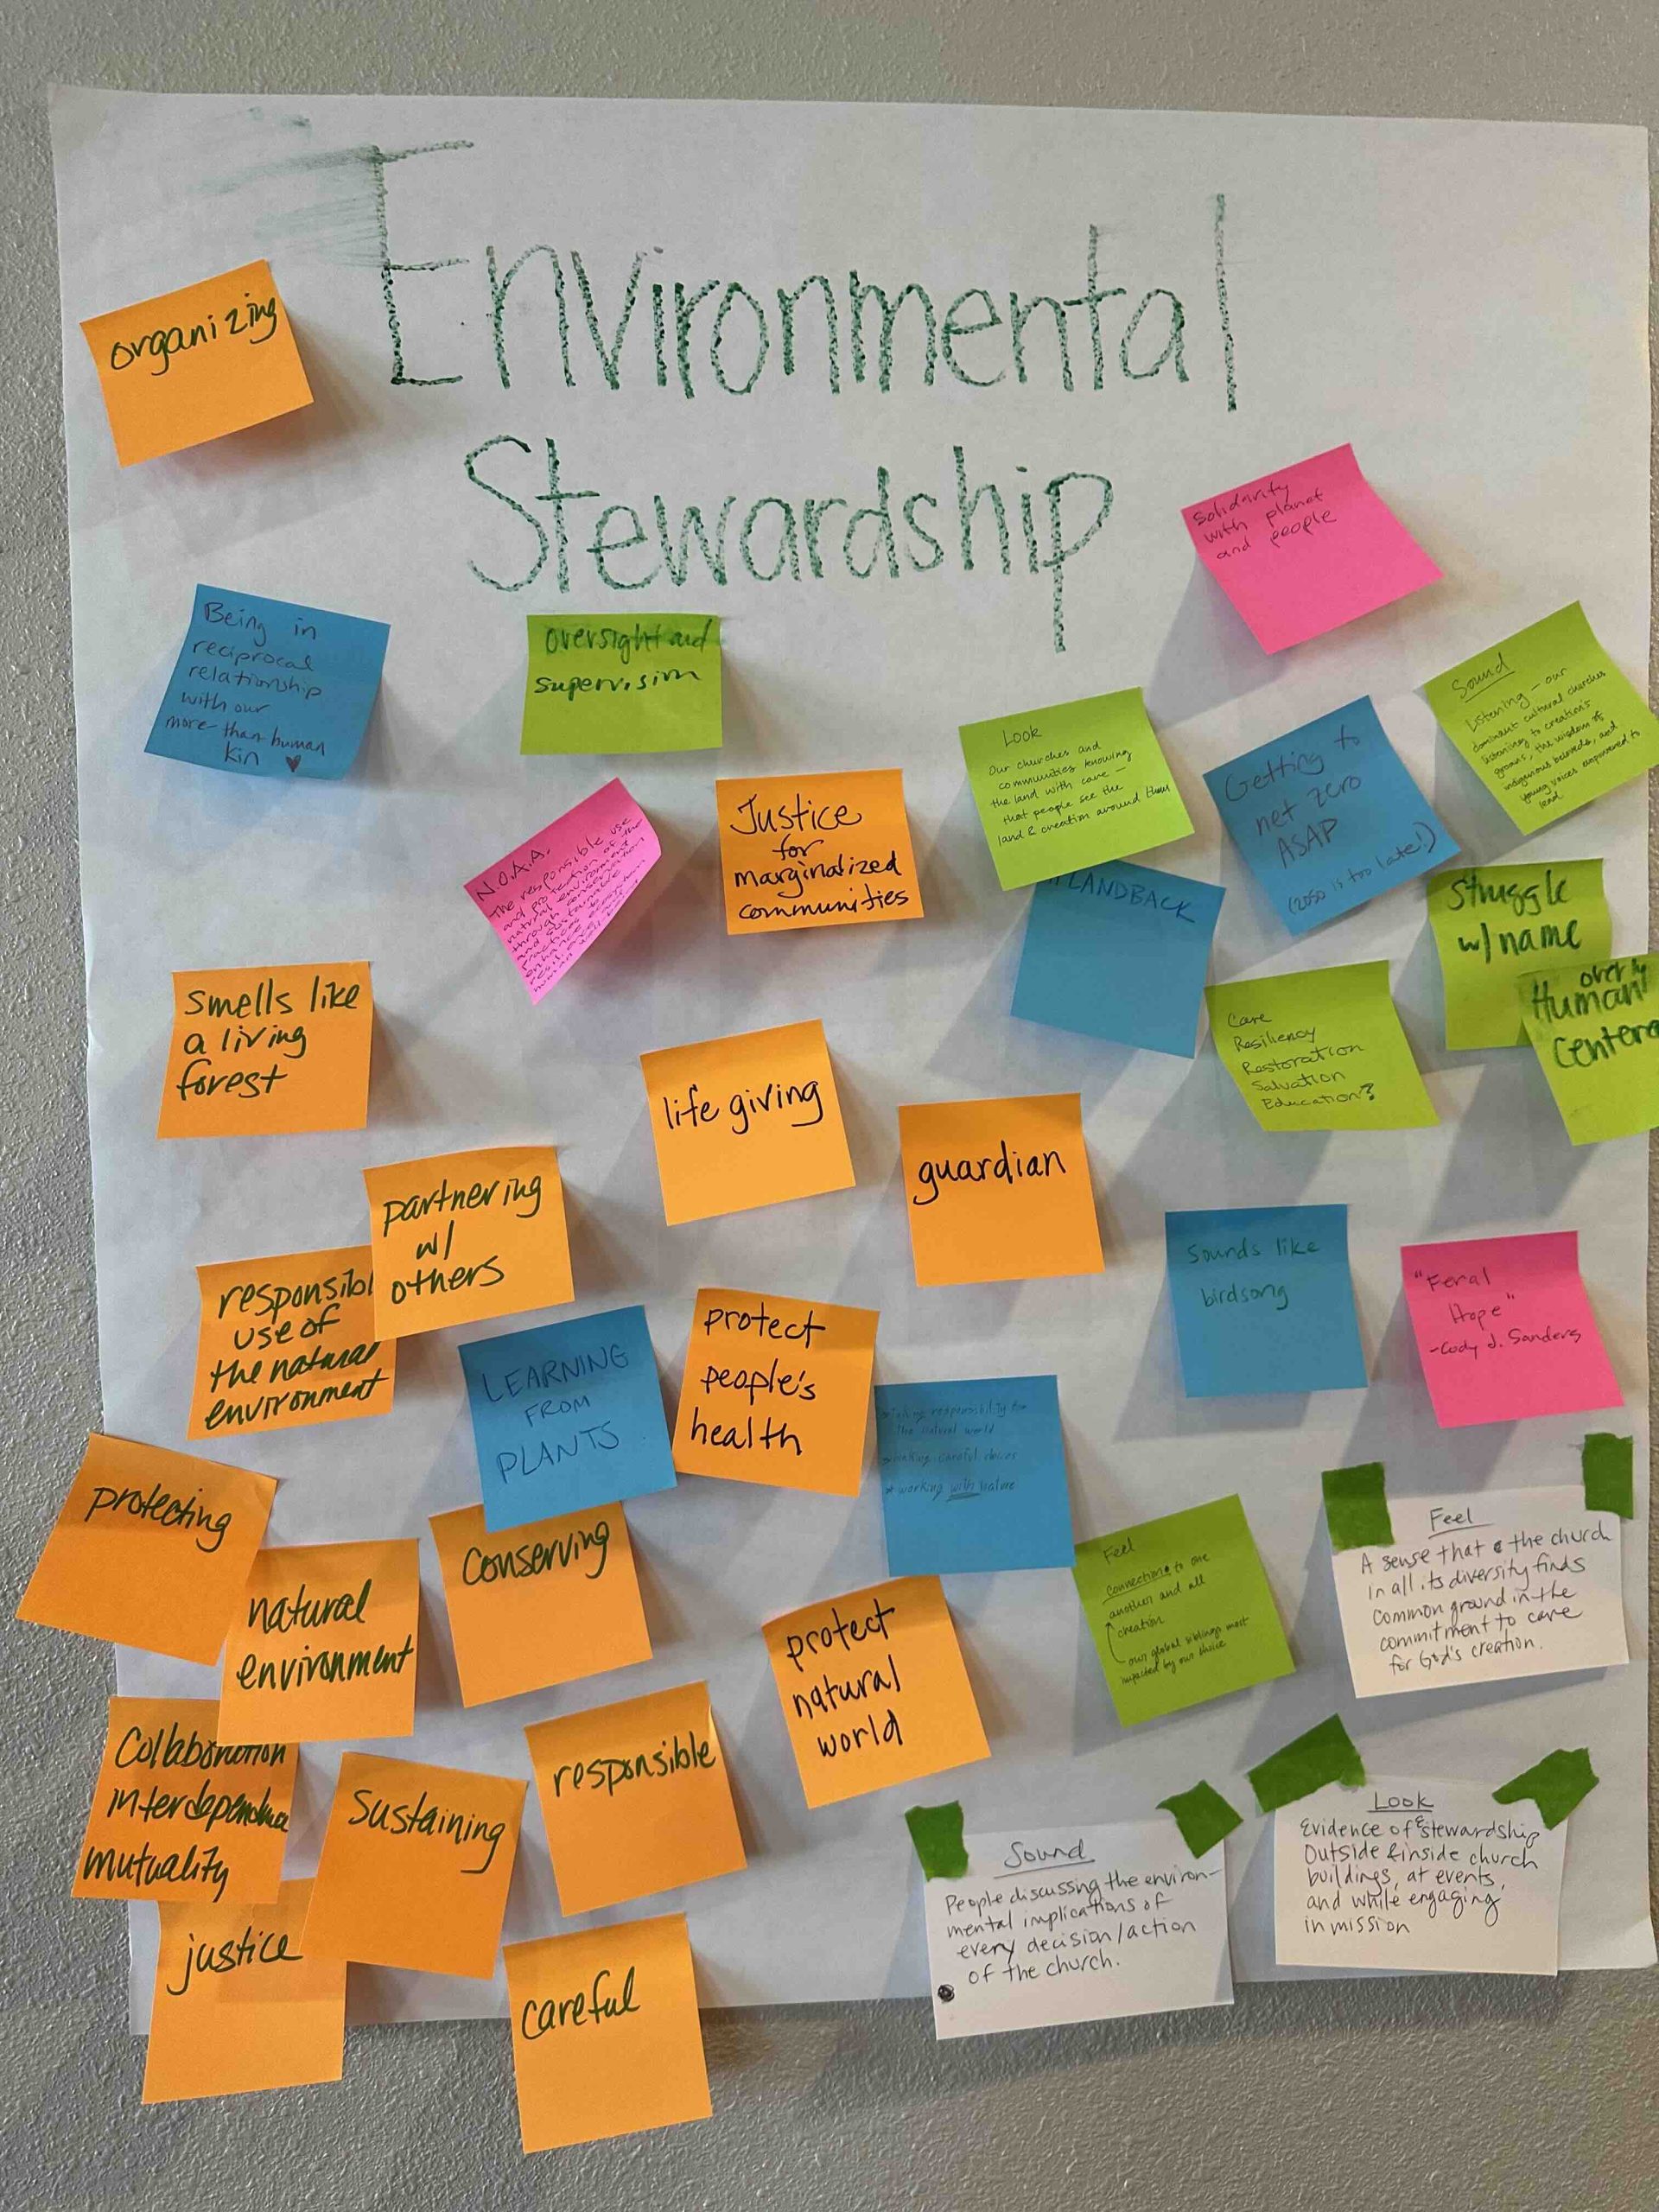 Environmental
Stewardship
organizing
Solidarity
with planet
and people
Being in
reciprocal
relationship
with our
more than human
kin
oversight and
supervision
Look
Our churches and
communities knowing
the land with care —
that people see the
land & creation around them
Getting to
net zero
ASAP
(2050 is too late!)
Sound
Listening — our
dominant cultural churches
listening to creation's
groans, the wisdom of
indigenous beloveds, and
young voices empowered to
lead
N.O.A.A.
The responsible use
and protection of the
natural environment
through conservation
and sustainable
practices to
enhance
Justice
for
marginalized
communities
LANDBACK
Struggle
w/ name
overly
Human
Centered
Care
Resiliency
Restoration
Salvation
Education?
smells like
a living
forest
life giving
guardian
partnering
w/
others
responsibl
use of
the natural
environment
Sounds like
birdsong
"Feral
Hope"
-Cody J. Sanders
LEARNING
FROM
PLANTS
protect
people's
health
responsibility for
the natural world
careful
* working with nature
protecting
natural
environment
Conserving
protect
natural
world
Feel
Connections to one
another and all
creation
our global siblings most
impacted by our choice
Feel
A sense that the church
in all its diversity finds
common ground in the
commitment to care
for God's creation.
Collaboration
interdependence
mutuality
Sustaining
responsible
justice
careful
Sound
People discussing the environ-
mental implications of
every decision/action
of the church.
Look
Evidence of E stewardship
Outside & inside church
buildings, at events,
and while engaging
in mission